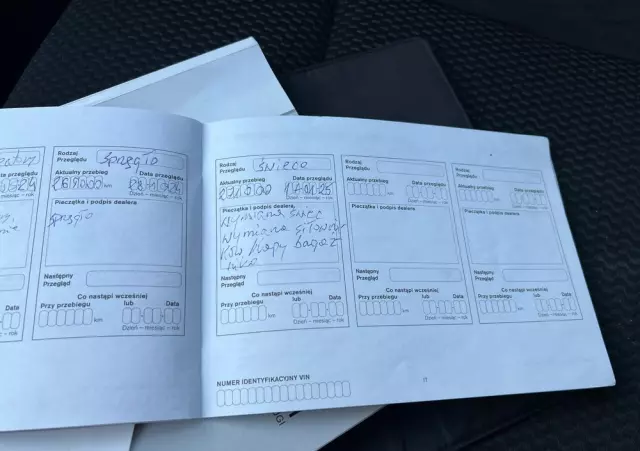 Rodzaj Przeglądu sprzęgło
Aktualny przebieg Data przeglądu
km
Dzień – miesiąc – rok
Pieczątka i podpis dealera
sprzęgło
Następny Przegląd
Co nastąpi wcześniej
Przy przebiegu lub Data
km Dzień – miesiąc – rok
Rodzaj Przeglądu świece
Aktualny przebieg Data przeglądu
271000 km
Dzień – miesiąc – rok
Pieczątka i podpis dealera
Wymiana świec
Wymiana siłownika
klapy bagaż
Następny Przegląd
Co nastąpi wcześniej
Przy przebiegu lub Data
km Dzień – miesiąc – rok
Rodzaj Przeglądu
Aktualny przebieg Data przeglądu
km Dzień – miesiąc – rok
Pieczątka i podpis dealera
Następny Przegląd
Co nastąpi wcześniej
Przy przebiegu lub Data
km Dzień – miesiąc – rok
Rodzaj Przeglądu
Aktualny przebieg Data przeglądu
km Dzień – miesiąc – rok
Pieczątka i podpis dealera
Następny Przegląd
Co nastąpi wcześniej
Przy przebiegu lub Data
km Dzień – miesiąc – rok
NUMER IDENTYFIKACYJNY VIN
17